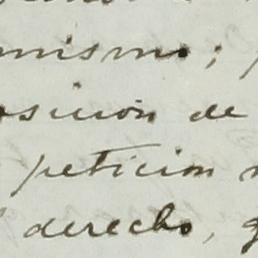 mismo;
osición de
petición
derecho,